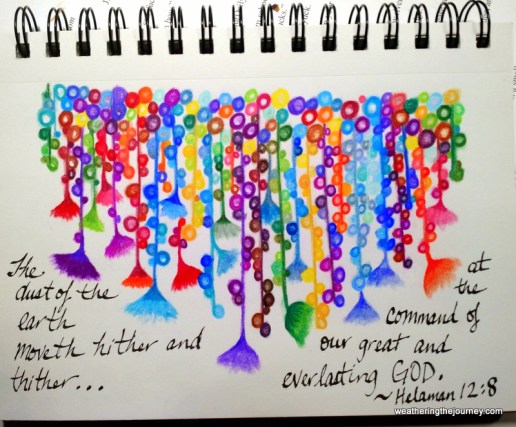 The
dust of the
earth
moveth hither and
thither...
at
the
command of
our great and
everlasting GOD.
~Helaman 12:8
weatheringthejourney.com